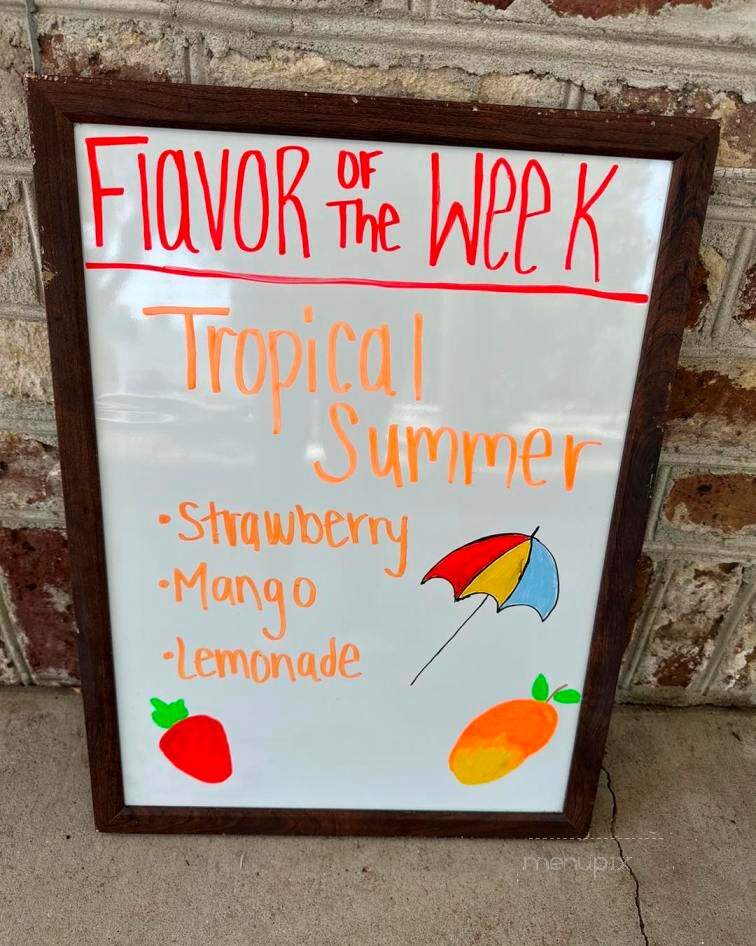 Flavor OF The Week
Tropical
Summer
•Strawberry
•Mango
•Lemonade
menupix